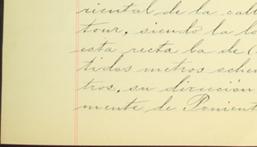 riental de la call
tour, siendo la lo
esta recta la de C
tidos metros schen
tros, su dirección
mente de Ponient